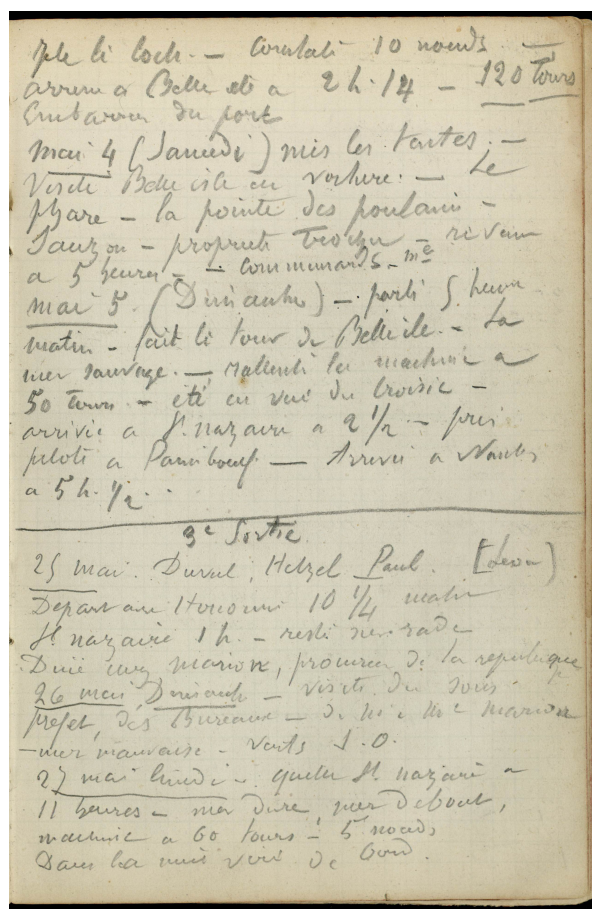 le loch. — Constaté 10 noeuds —
arrivée a Belle ile a 2 h. 14 — 120 tours
Embarras du port
mai 4 (Samedi) mis les tentes. —
Visité Belle isle en voiture. — Le
phare — la pointe des poulains —
Sauzon — propriété Trochu — revenu
a 5 heures — — commandt S. me
mai 5 (Dimanche) — parti 5 heures
matin — fait le tour de Belle ile. — La
mer sauvage. — rallenti la machine a
50 tours — été en vue du Croisic —
arrivée a St. nazaire a 2 1/2 — pris
pilote a Paimboeuf — Arrivée a Nantes
a 5 h. 1/2 . .
3e Sortie
25 mai. Duval, Hetzel Paul. [Leon]
Départ aux Honorine 10 1/4 matin
St. nazaire 1 h. — resté sur rade
Diné chez Marion, procureur de la republique
26 mai, Dimanche — visite du sous-
prefet, des Bureaux — de M. et Me Marion
— mer mauvaise — vents S.O.
27 mai lundi — quitté St. nazaire a
11 heures — mer dure, mer debout,
machine a 60 tours — 5 noeuds
Dans la nuit viré de bord.